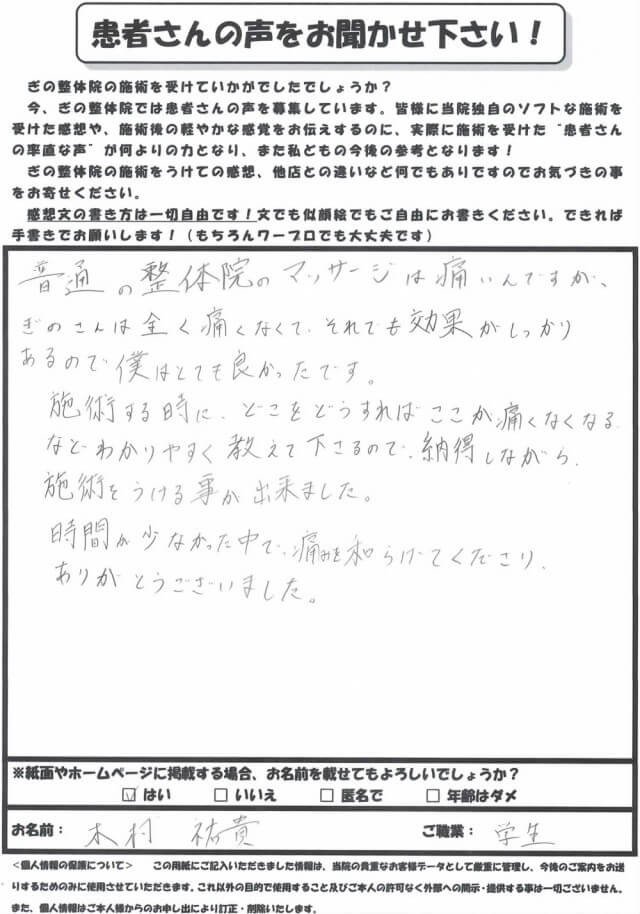 患者さんの声をお聞かせ下さい！
ぎの整体院の施術を受けていかがでしたでしょうか？
今、ぎの整体院では患者さんの声を募集しています。皆様に当院独自のソフトな施術を
受けた感想や、施術後の軽やかな感覚をお伝えするのに、実際に施術を受けた“患者さん
の率直な声”が何よりの力となり、また私どもの今後の参考となります！
ぎの整体院の施術をうけての感想、他店との違いなど何でもありですのでお気づきの事
をお寄せください。
感想文の書き方は一切自由です！文でも似顔絵でもご自由にお書きください。できれば
手書きでお願いします！（もちろんワープロでも大丈夫です）
普通の整体院のマッサージは痛いんですが、
ぎのさんは全く痛くなくて、それでも効果がしっかり
あるので僕はとても良かったです。
施術する時に、どこをどうすればここが痛くなくなる
などわかりやすく教えて下さるので、納得しながら、
施術をうける事が出来ました。
時間が少なかった中で、痛みを和らげてくださり、
ありがとうございました。
※紙面やホームページに掲載する場合、お名前を載せてもよろしいでしょうか？
☑ はい □ いいえ □ 匿名で □ 年齢はダメ
お名前： 木村 祐貴 ご職業： 学生
＜個人情報の保護について＞ この用紙にご記入いただきました情報は、当院の貴重なお客様データとして厳重に管理し、今後のご案内をお送
りするためのみに使用させていただきます。これ以外の目的で使用すること及びご本人の許可なく外部への開示・提供する事は一切ございません。
また、個人情報はご本人様からのお申し出により訂正・削除いたします。